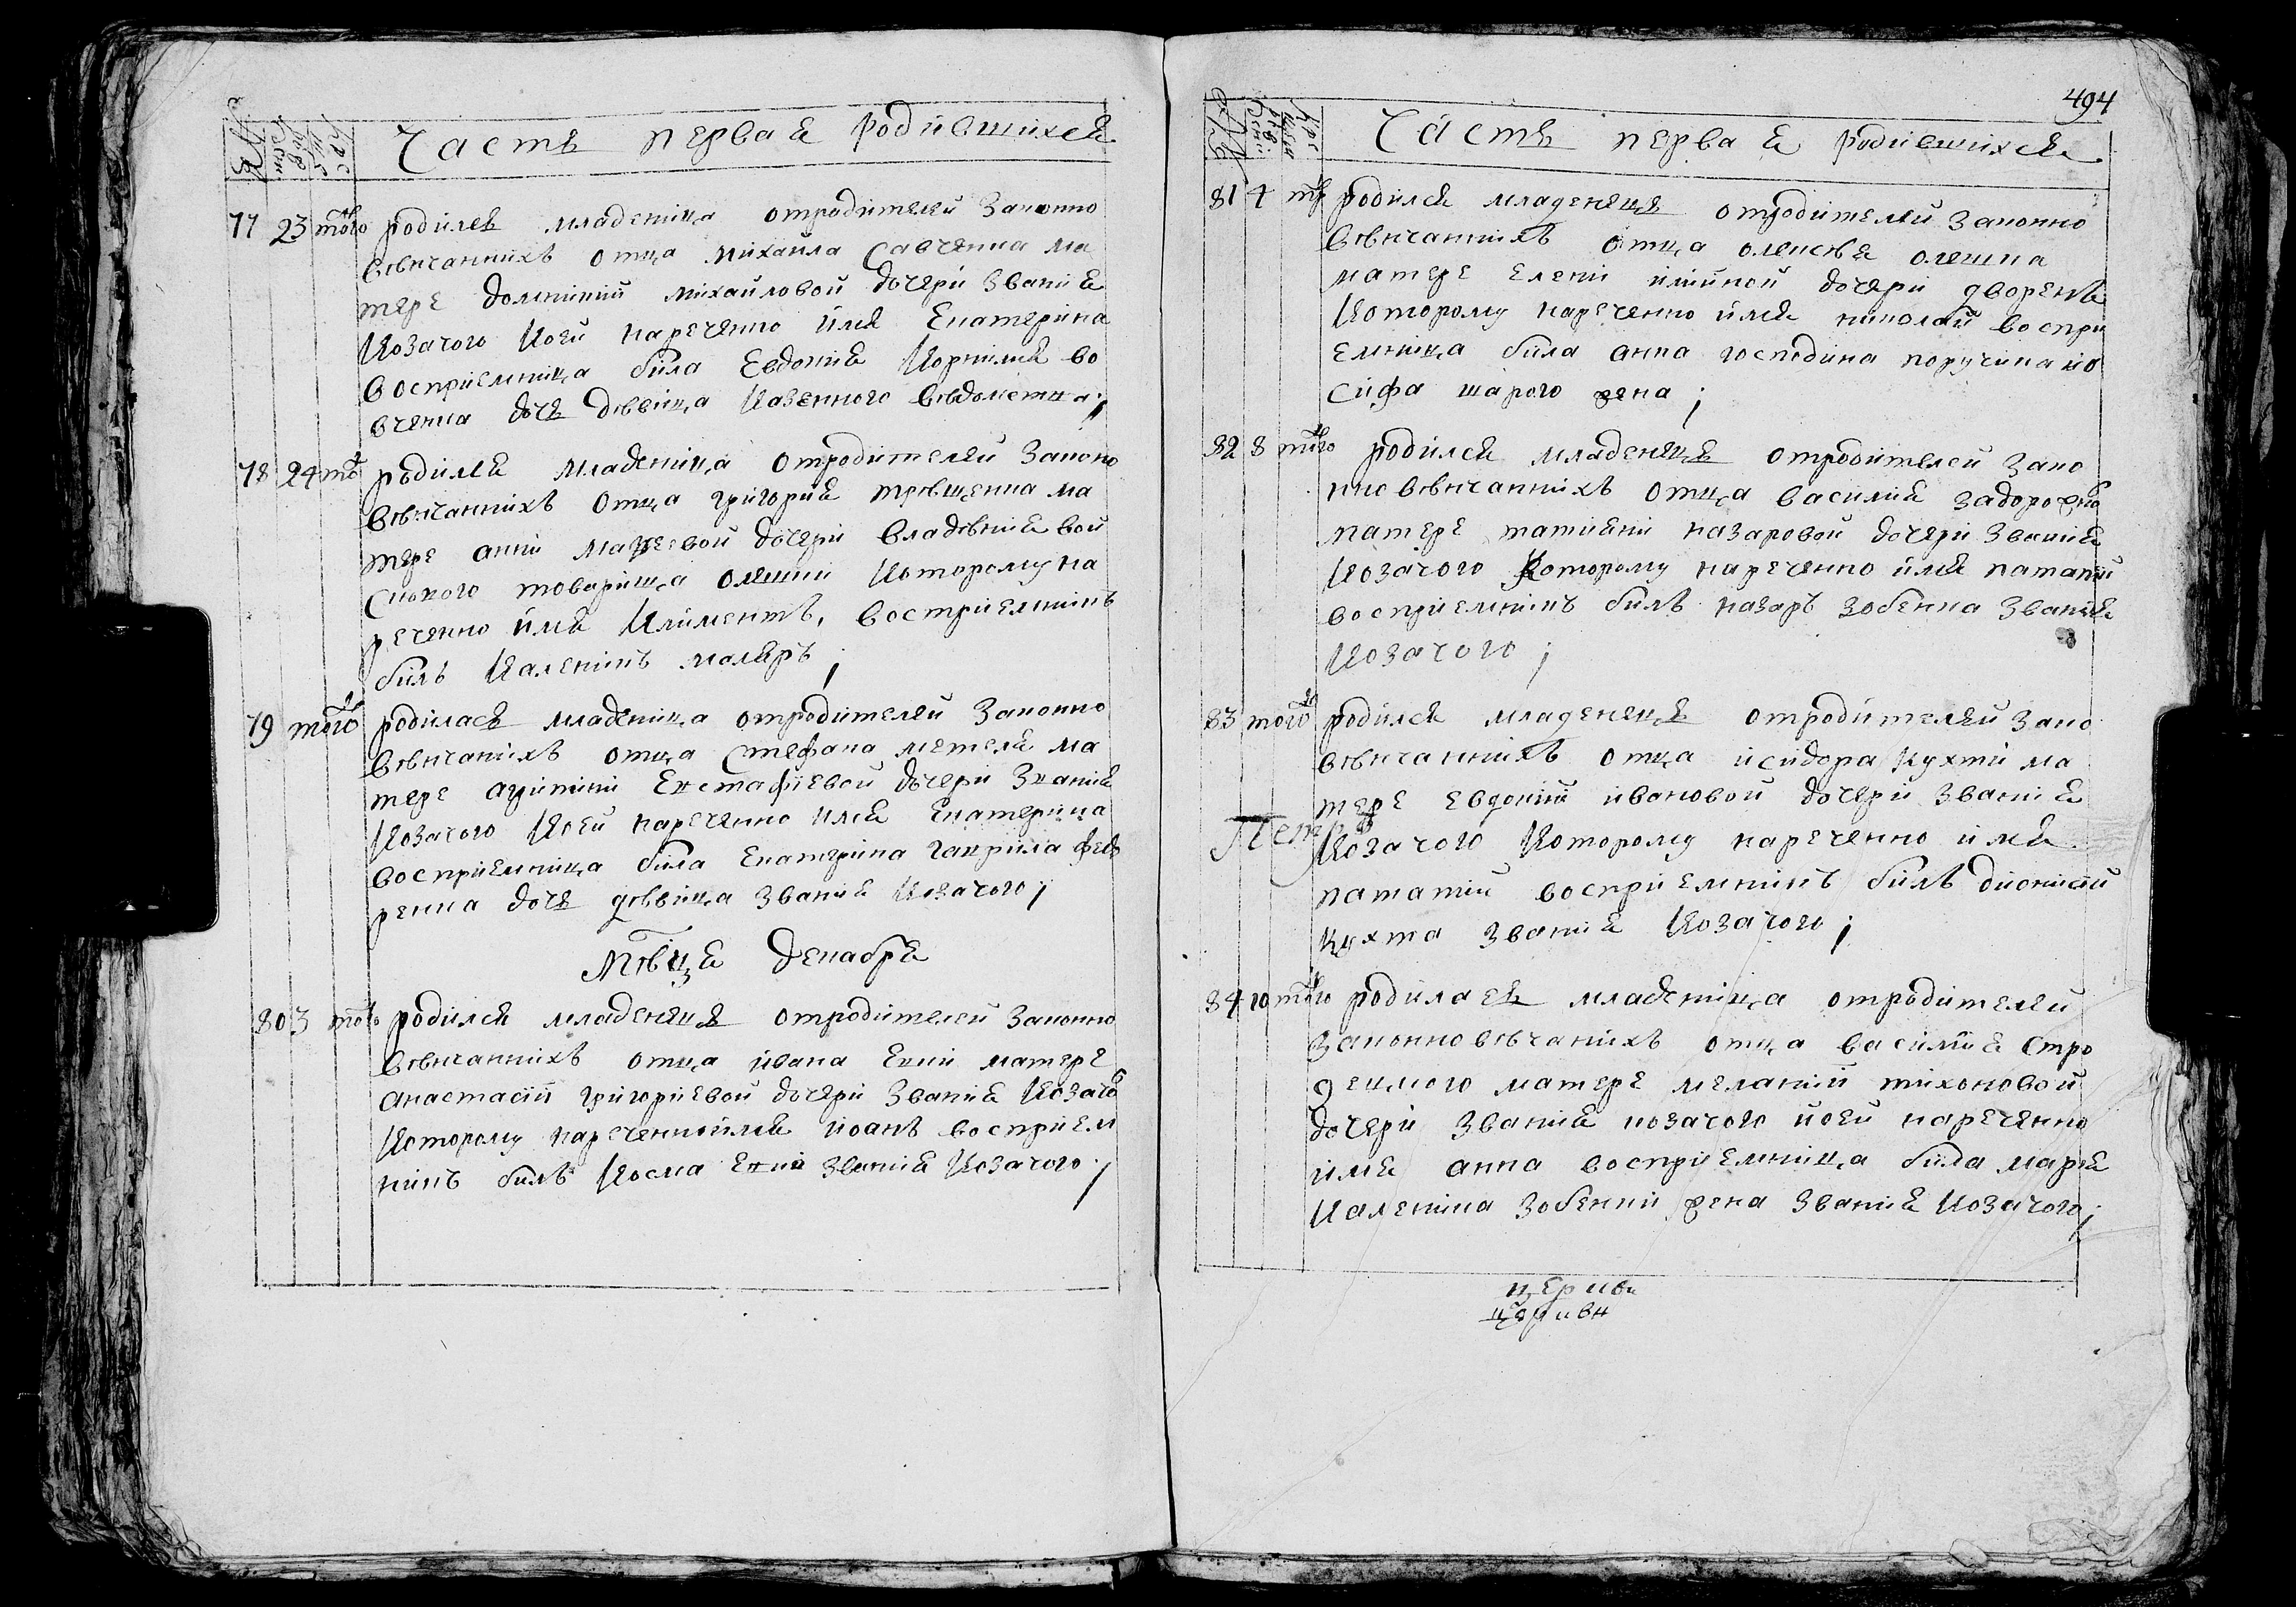 Часть перваѧ родившихсѧ
77 23 того родилсь младеница отродителей законно
вѣнчаннихъ отца михаила Савченка ма
тере домникии михайловой дочери званиѧ
козачого коей нареченно имѧ Екатерина
восприемница била Евдокиѧ Корнилиѧ во
вченка дочь дѣвица казенного вѣдомства;
78 24 то родилсѧ младеница отродителей законо
вѣнчаннихъ отца григориѧ
тере анни дочери владѣниѧ вой
скового товарища олешки которому на
реченно имѧ Климентъ, восприемникъ
билъ Каленикъ молѧръ;
79 того родиласъ младеница отродителей законно
вѣнчанихъ отца Стефана метелѧ ма
тере агрипини Евстафиевой дочери званиѧ
козачого коей нареченно имѧ Екатерина
восприемница била Екатерина гаврила федо
ренка дочь дѣвица званиѧ козачого;
Мѣцѧ декабрѧ
80 3 того родилсѧ младенецъ отродителей законно
вѣнчаннихъ отца ивана матере
анастасии григориевой дочери званиѧ козачо
которому нареченноимѧ иоанъ восприем
никъ билъ Косма званиѧ козачого;
494
Часть перваѧ родившихсѧ
81 4 родилсѧ младенецъ отродителей законно
вѣнчаннихъ отца олексѣѧ олешка
матере елени илииной дочери дворенъ
которому нареченно имѧ николай воспри
емница била анна господина поручика ио
сифа шарого жена;
82 8 того родилсѧ младенецъ отродителей зако
нно вѣнчаннихъ отца василиѧ задорожно
матере татиѧни назаровой дочери званиѧ
козачого которому нареченно имѧ патапий
восприемникъ билъ назаръ зобенка званиѧ
козачого;
83 того родилсѧ младенецъ отродителей зако
вѣнчаннихъ отца исидора кухти ма
тере евдокии ивановой дочери званиѧ
козачого которому нареченно имѧ
патапий восприемникъ билъ дионисий
кухта званиѧ козачого;
84 10 того родиласъ младеница отродителей
законно вѣчанихъ отца василиѧ стро
матере мелании тихоновой
дочери званиѧ козачого коей нареченно
имѧ анна восприемница била мариѧ
каленика зобенки жена званиѧ козачого;